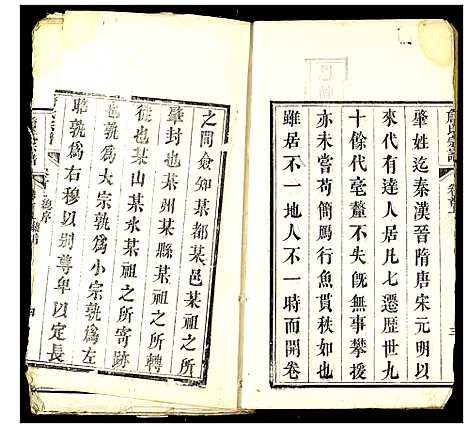 肇姓迄秦漢晉隋唐宋元明以
來代有達人居凡七遷歷世九
十餘代毫釐不失旣無事攀援
亦未嘗苟簡馬行魚貫秩如也
雖居不一地人不一時而開卷
之間僉知某都某邑某祖之所
肇封也某州某縣某祖之所轉
徙也某山某水某祖之所寄跡
也孰爲大宗孰爲小宗孰爲左
昭孰爲右穆以别尊卑以定長